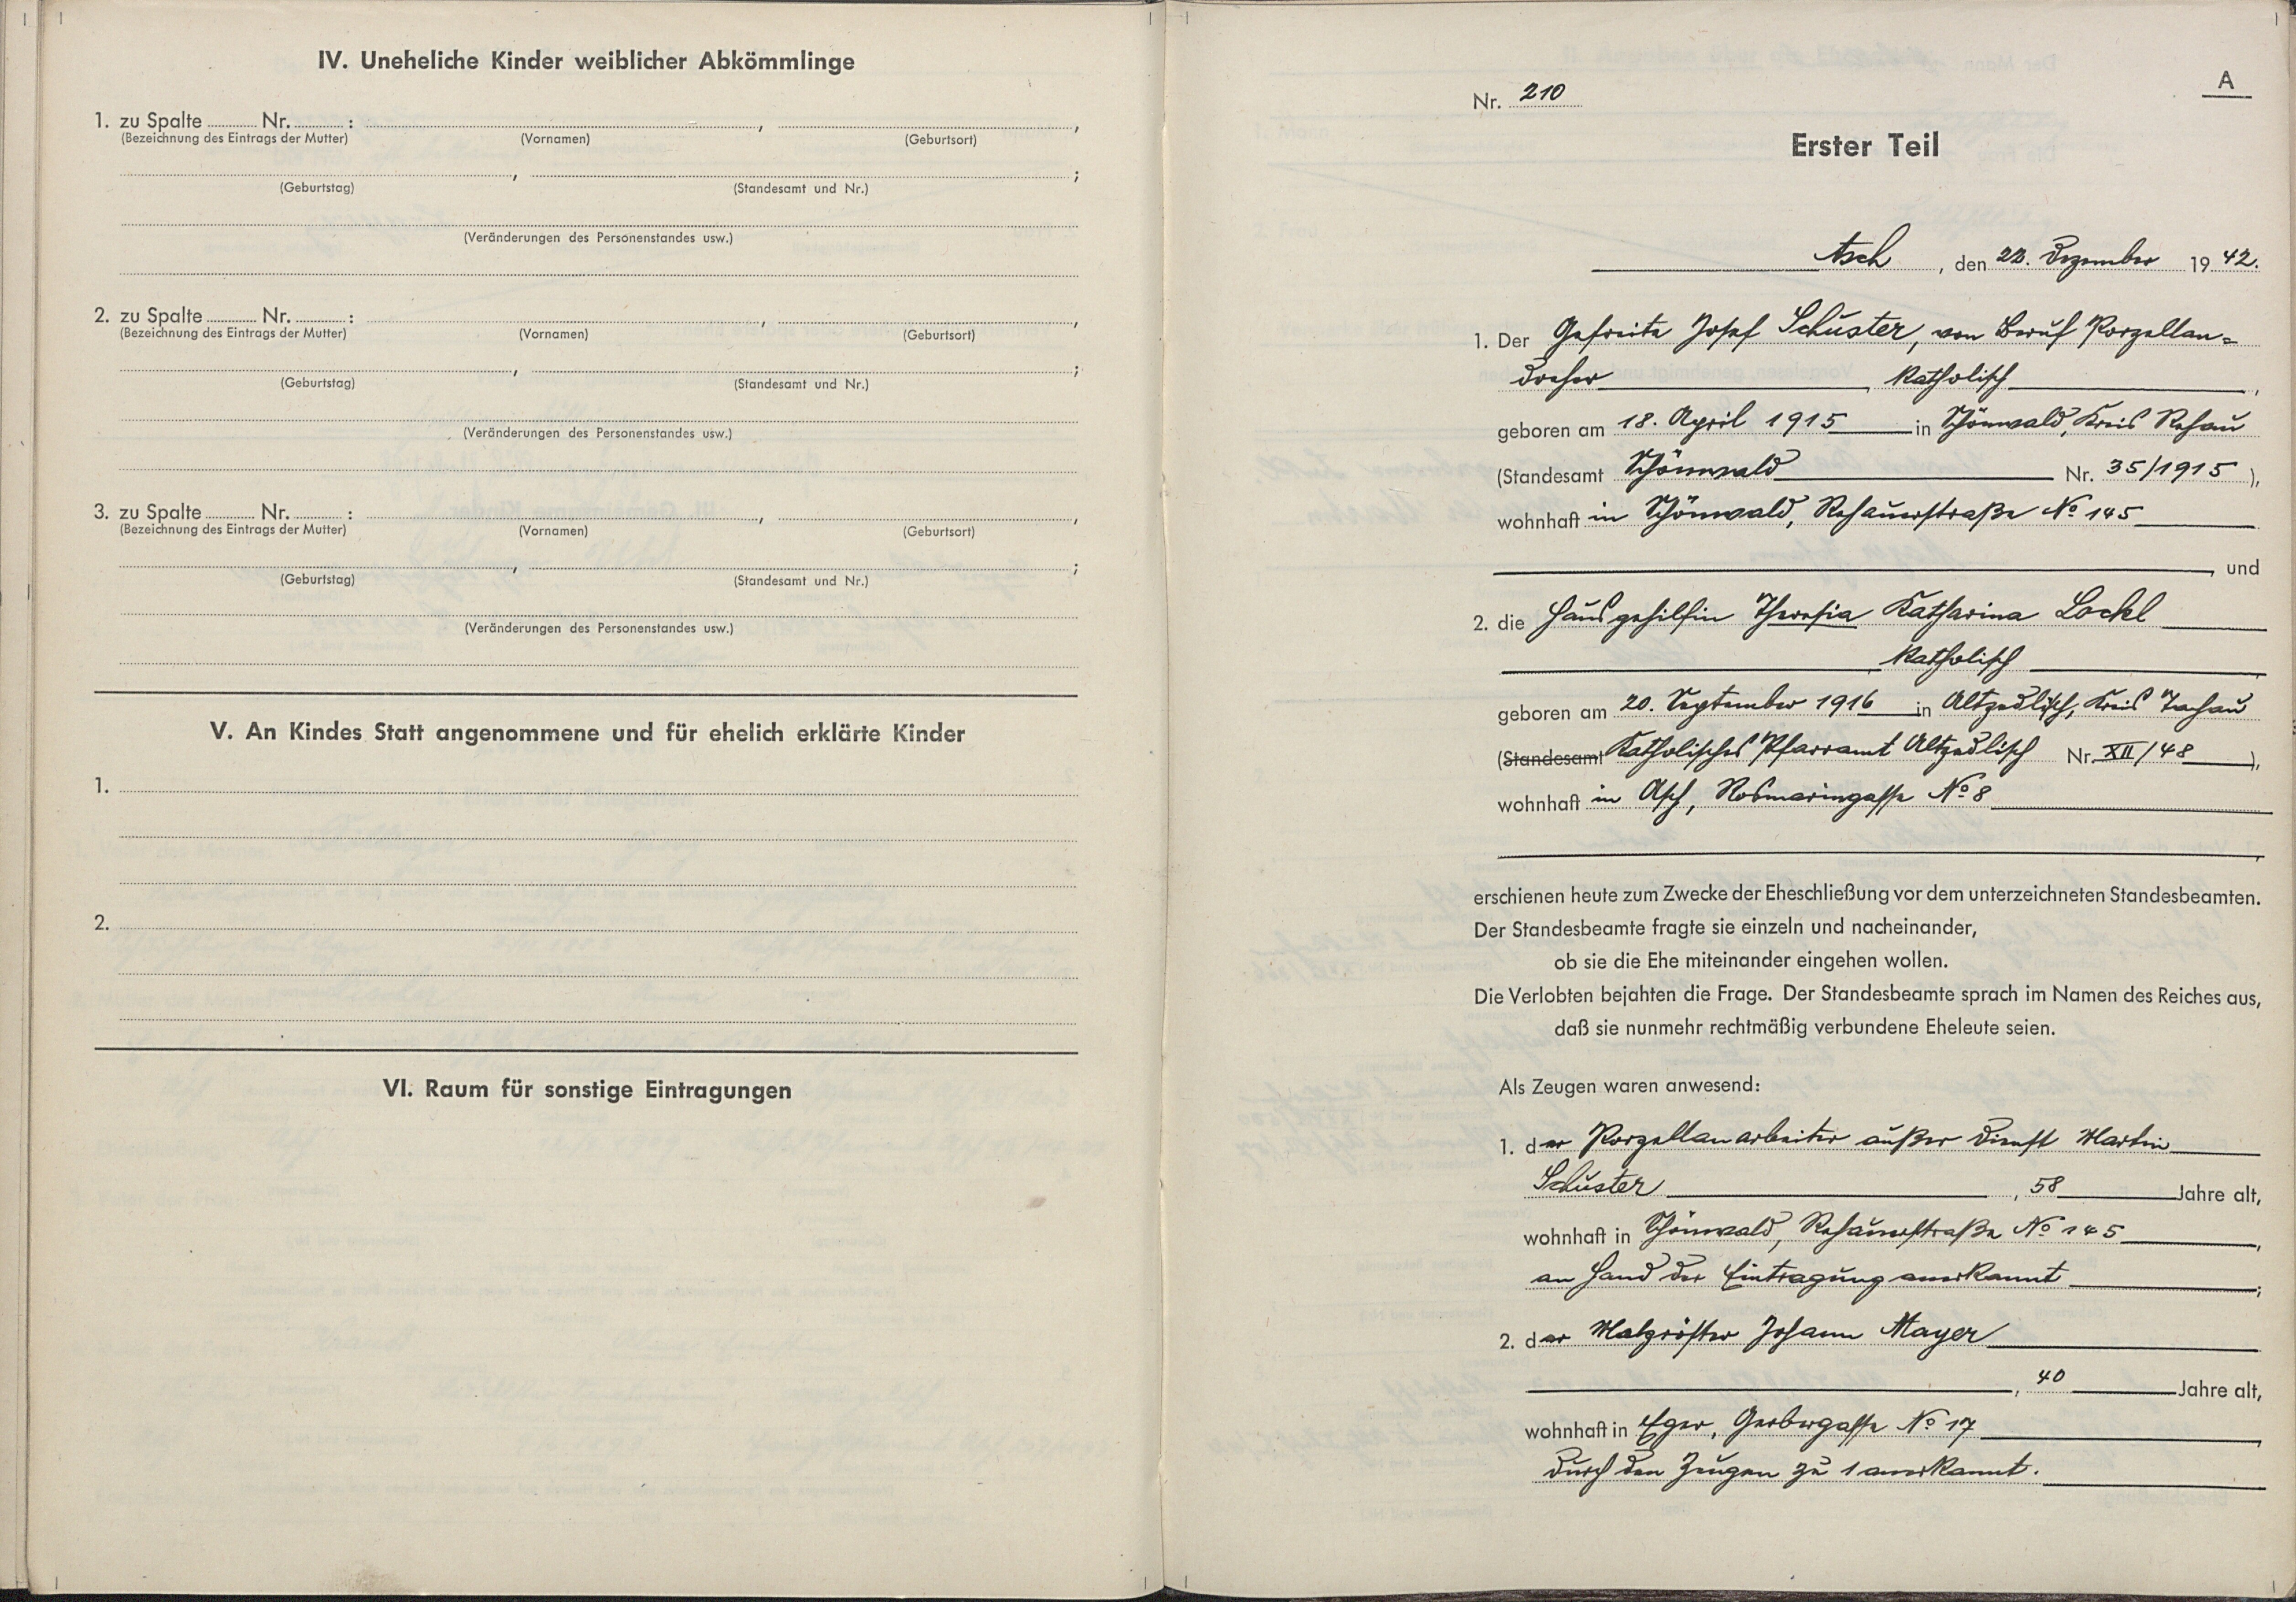 IV. Uneheliche Kinder weiblicher Abkömmlinge
1. zu Spalte Nr. : , ,
(Bezeichnung des Eintrags der Mutter) (Vornamen) (Geburtsort)
, ;
(Geburtstag) (Standesamt und Nr.)
(Veränderungen des Personenstandes usw.)
2. zu Spalte Nr. : , ,
(Bezeichnung des Eintrags der Mutter) (Vornamen) (Geburtsort)
, ;
(Geburtstag) (Standesamt und Nr.)
(Veränderungen des Personenstandes usw.)
3. zu Spalte Nr. : , ,
(Bezeichnung des Eintrags der Mutter) (Vornamen) (Geburtsort)
, ;
(Geburtstag) (Standesamt und Nr.)
(Veränderungen des Personenstandes usw.)
V. An Kindes Statt angenommene und für ehelich erklärte Kinder
1.
2.
VI. Raum für sonstige Eintragungen
A
Nr. 210
Erster Teil
Asch, den 22. Dezember 1942.
1. Der Gefreite Josef Schuster, von Beruf Porzellan=
dreher, katholisch,
geboren am 18. April 1915 in Schönwald, Kreis Rehau
(Standesamt Schönwald Nr. 35/1915),
wohnhaft in Schönwald, Rehauerstraße No 145
, und
2. die Hausgehilfin Theresia Katharina Lockl
, katholisch,
geboren am 20. September 1916 in Altzedlisch, Kreis Tachau
(Standesamt Katholisches Pfarramt Altzedlisch Nr. XII/48),
wohnhaft in Asch, Rosmaringasse No 8
,
erschienen heute zum Zwecke der Eheschließung vor dem unterzeichneten Standesbeamten.
Der Standesbeamte fragte sie einzeln und nacheinander,
ob sie die Ehe miteinander eingehen wollen.
Die Verlobten bejahten die Frage. Der Standesbeamte sprach im Namen des Reiches aus,
daß sie nunmehr rechtmäßig verbundene Eheleute seien.
Als Zeugen waren anwesend:
1. der Porzellanarbeiter außer Dienst Martin
Schuster, 58 Jahre alt,
wohnhaft in Schönwald, Rehauerstraße No 145,
an Hand der Eintragung anerkannt;
2. der Malzröster Johann Mayer
, 40 Jahre alt,
wohnhaft in Eger, Gerbergasse No 17,
durch den Zeugen zu 1 anerkannt.